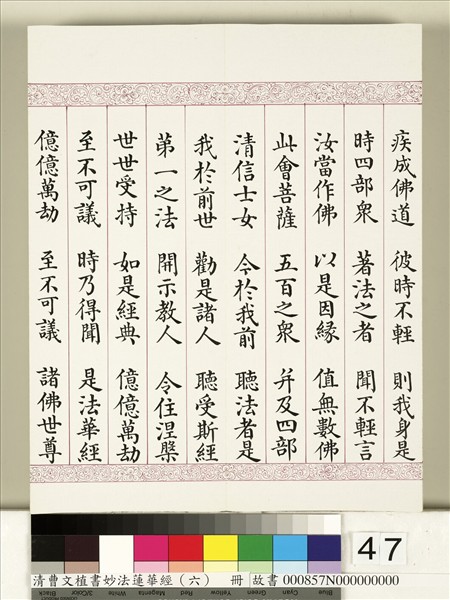 疾成佛道 彼時不輕 則我身是
時四部衆 著法之者 聞不輕言
汝當作佛 以是因緣 值無數佛
此會菩薩 五百之衆 并及四部
清信士女 今於我前 聽法者是
我於前世 勸是諸人 聽受斯經
第一之法 開示教人 令住涅槃
世世受持 如是經典 億億萬劫
至不可議 時乃得聞 是法華經
億億萬劫 至不可議 諸佛世尊
47
Black 3/Color White Magenta Red Yellow Green Cyan Blue
清曹文植書妙法蓮華經（六） 冊 故書 000857N000000000